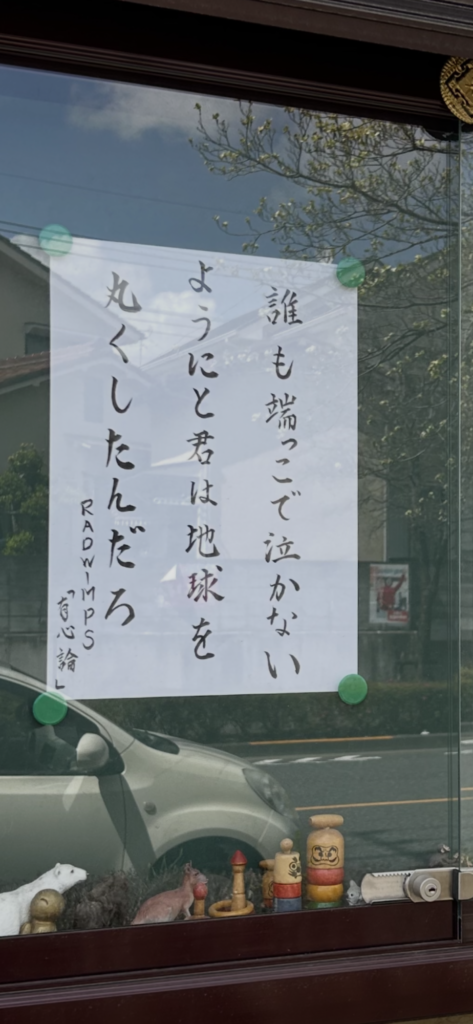 誰も端っこで泣かない
ようにと君は地球を
丸くしたんだろ
RADWIMPS
「有心論」